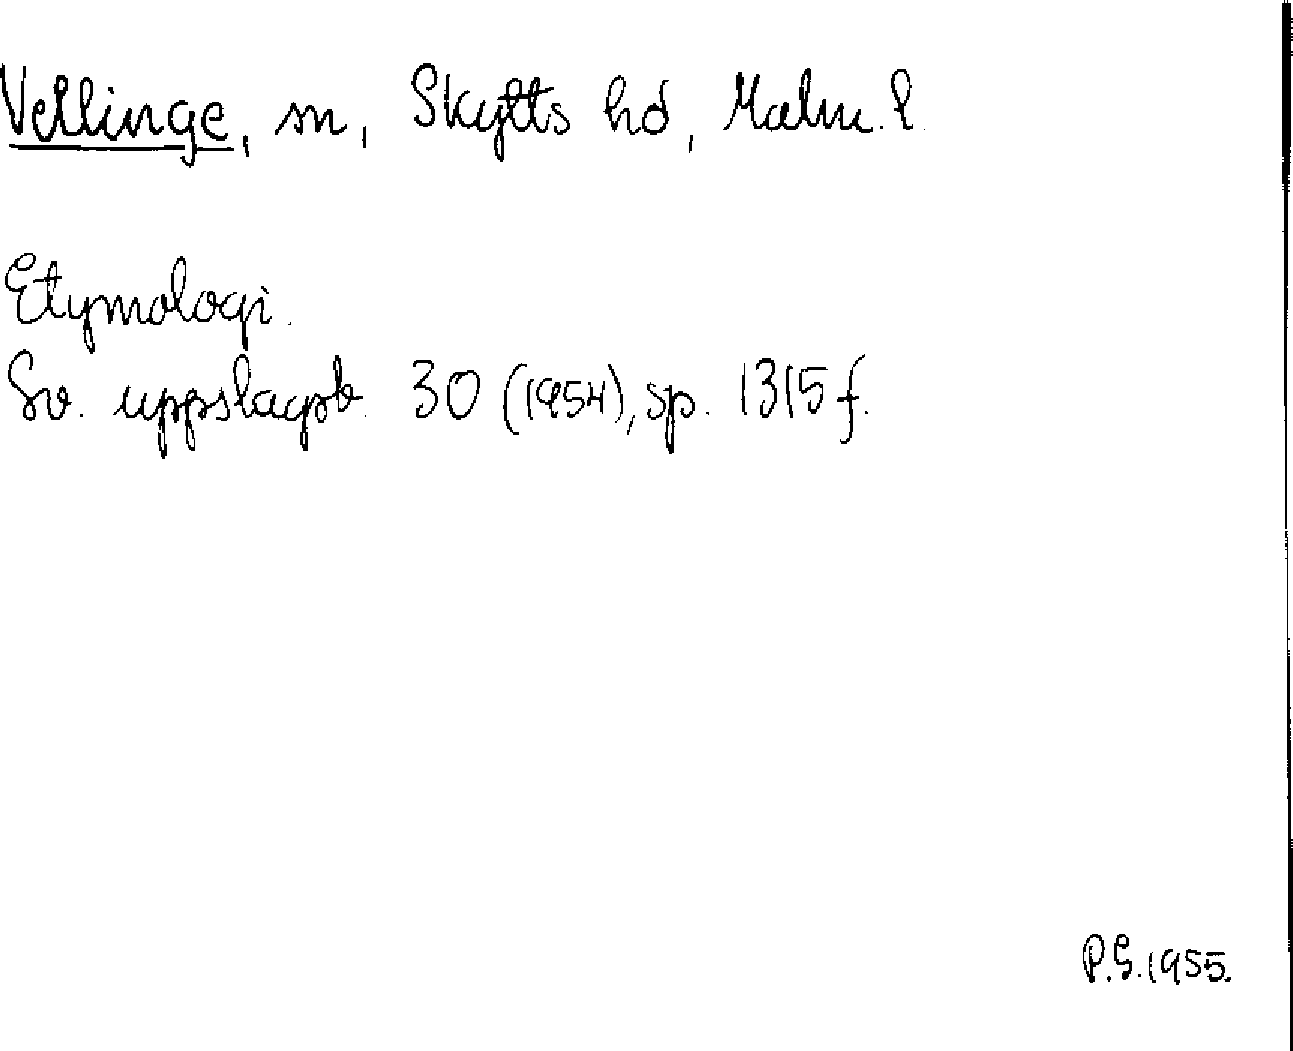 Vellinge, sn, Skytts hd, Malm. l.
Etymologi.
Sv. uppslagsb. 30 (1954), sp. 1315 f.
P.G. 1955.